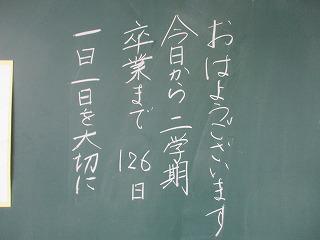 おはようございます
今日から二学期
卒業まで126日
一日一日を大切に